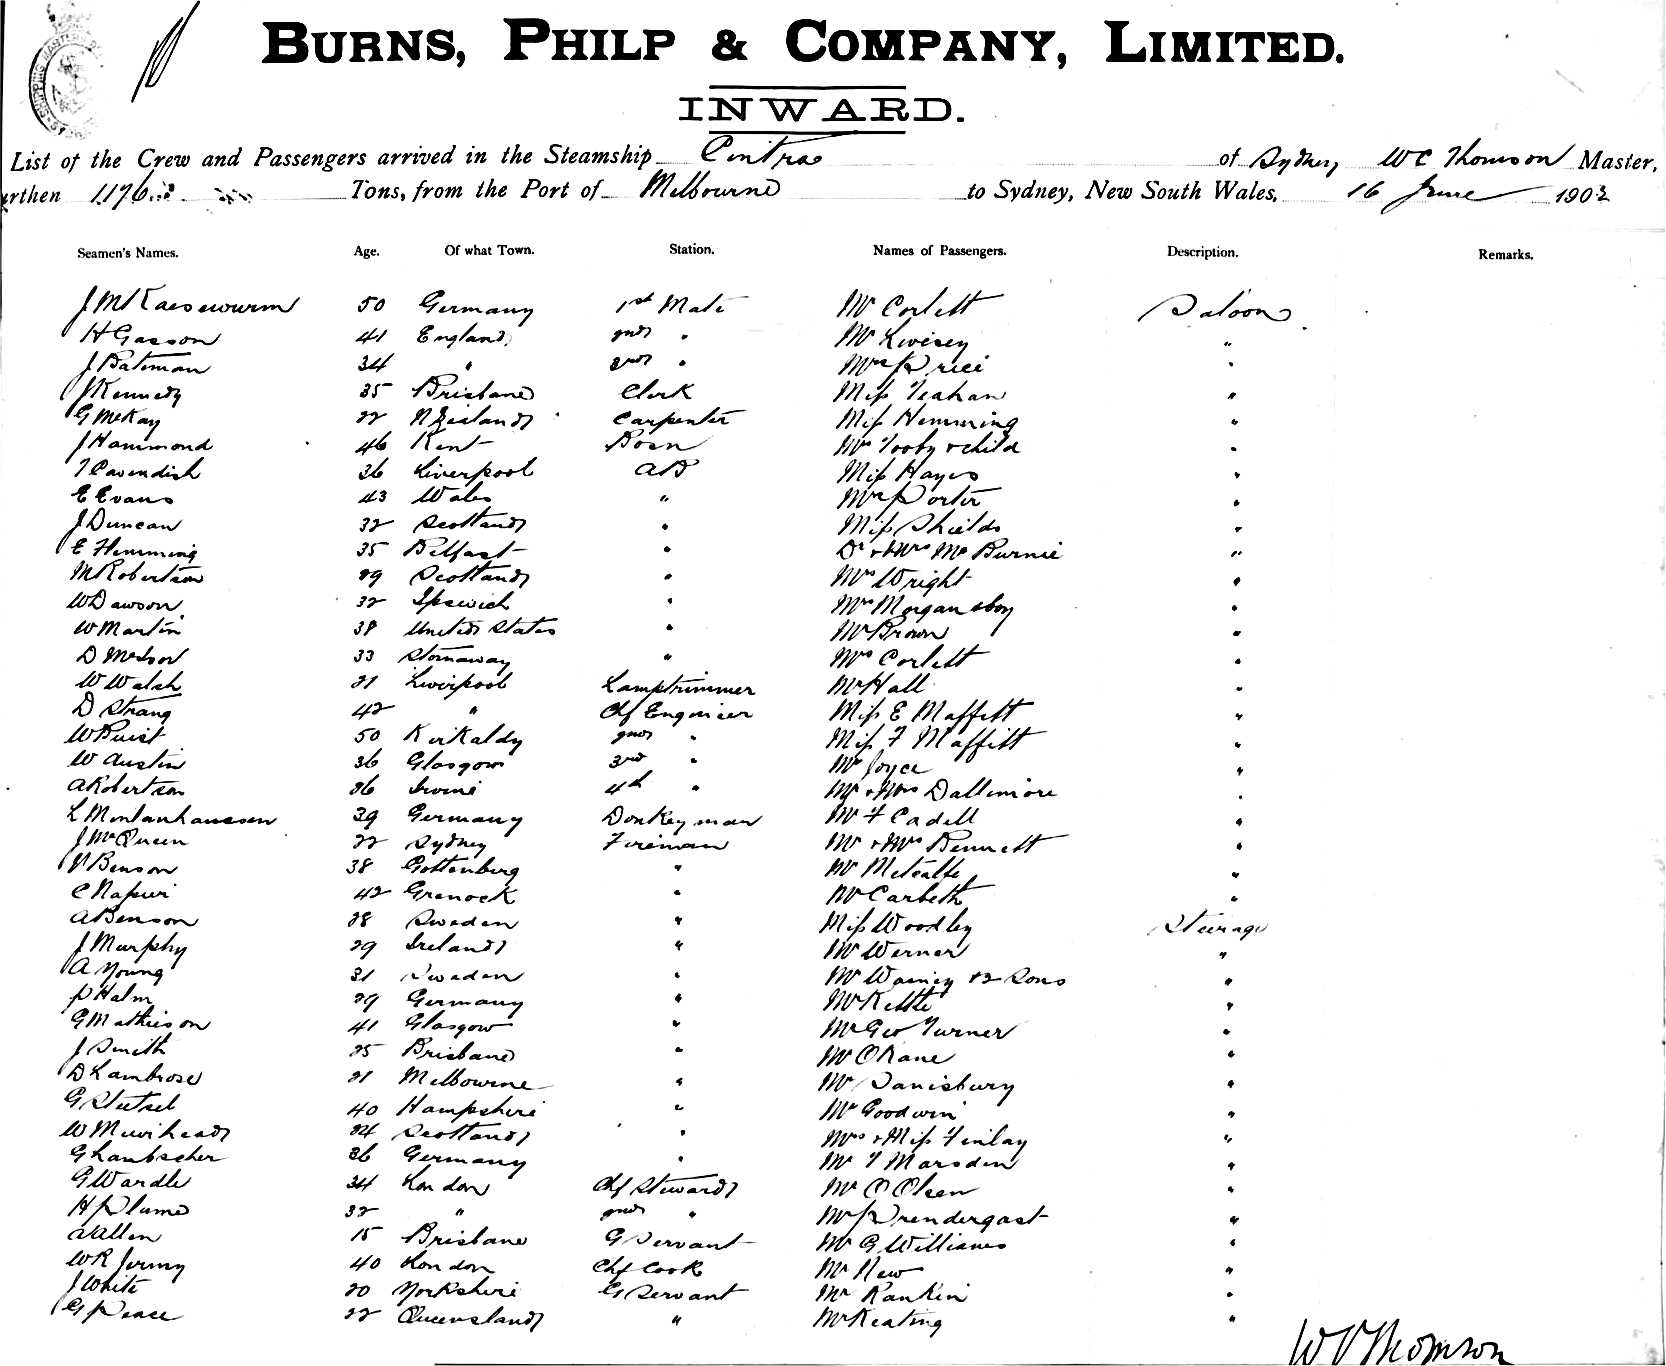 BURNS, PHILP & COMPANY, LIMITED.
INWARD.
List of the Crew and Passengers arrived in the Steamship Cintra of Sydney W C Thomson Master,
urthen 1176 Tons, from the Port of Melbourne to Sydney, New South Wales, 16 June 1902
Seamen's Names. Age. Of what Town. Station. Names of Passengers. Description. Remarks.
50 Germany 1st Mate Mr Corlett Saloon
H Gasson 41 England 2nd " Mr Livesey "
J Bateman 34 " 3rd " Mrs Price "
J Kennedy 35 Brisbane Clerk Miss Teahan "
G McKay 22 N Zealand Carpenter Miss Hemming "
J Hammond 46 Kent Bosn Mrs Tooby & child "
T Cavendish 36 Liverpool AB Miss Hayes "
E Evans 43 Wales " Mrs Porter "
J Duncan 32 Scotland " Miss Shields "
E Hemming 35 Belfast " Dr & Mrs McBurnie "
M Robertson 29 Scotland " Mrs Wright "
W Dawson 32 Ipswich " Mrs Morgan & boy "
W Martin 38 United States " Mr Brown "
D 33 Stornaway " Mrs Corlett "
W Walsh 21 Liverpool Lamptrimmer Mr Hall "
D Strang 42 " Chf Engineer Miss E Maffitt "
W Buist 50 Kirkaldy 2nd " Miss F Maffitt "
W Austin 36 Glasgow 3rd " Mr Joyce "
A Robertson 26 Irvine 4th " Mr & Mrs Dallimore "
L Montanhaussen 39 Germany Donkeyman Mr F Cadell "
J McQueen 22 Sydney Fireman Mr & Mrs Bennett "
Benson 38 Gottenberg " Mr Metcalfe "
C Napier 42 Grenock " Mr Carbeth "
A Benson 28 Sweden " Miss Woodley Steerage
J Murphy 29 Ireland " Mr Werner "
A Young 31 Sweden " Mr Wainey & 2 Sons "
P Halm 29 Germany " Mr Kettle "
G Mathieson 41 Glasgow " Mr Geo Turner "
J Smith 25 Brisbane " Mr O Kane "
D Lambrose 21 Melbourne " Mr Sanisbury "
G Stutsel 40 Hampshire " Mr Goodwin "
W Muirhead 24 Scotland " Mrs & Miss Finlay "
G Laubscher 26 Germany " Mr T Marsden "
G Wardle 34 London Chf Steward Mr O Olsen "
H Plume 32 " 2nd " Mr Prendergast "
A Allen 15 Brisbane G Servant Mr G Williams "
W R Jermy 40 London Chf Cook Mr New "
J White 20 Yorkshire G Servant Mr Rankin "
G Peace 22 Queensland " Mr Keating "
W C Thomson